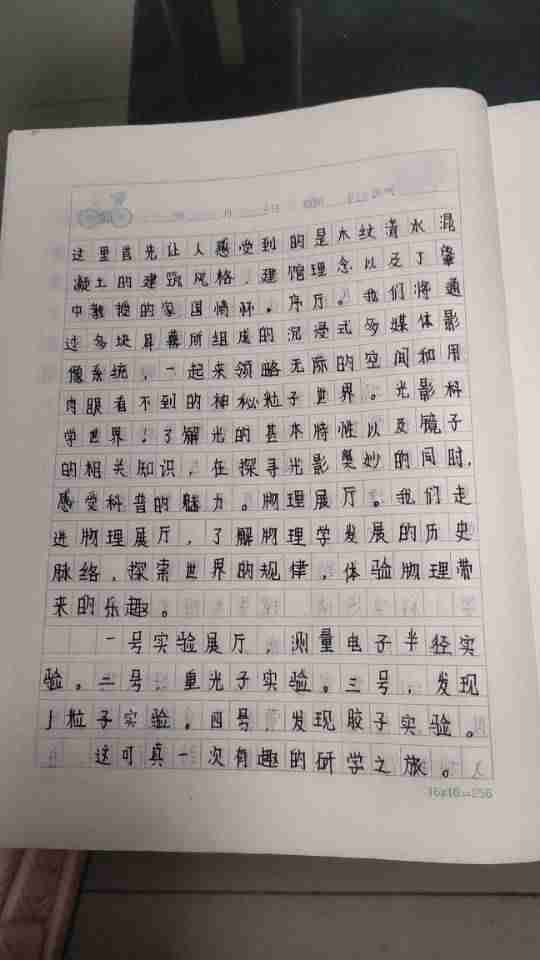 这里首先让人感受到的是木纹清水混
凝土的建筑风格、建馆理念以及丁肇
中教授的家国情怀。序厅。我们将通
过多块屏幕所组成的沉浸式多媒体影
像系统，一起来领略无际的空间和用
肉眼看不到的神秘粒子世界。光影科
学世界：了解光的基本特性以及镜子
的相关知识，在探寻光影奥妙的同时，
感受科普的魅力。物理展厅。我们走
进物理展厅，了解物理学发展的历史
脉络，探索世界的规律，体验物理带
来的乐趣。
一号实验展厅，测量电子半径实
验。二号：重光子实验。三号，发现
J粒子实验。四号，发现胶子实验。
这可真一次有趣的研学之旅。
16x16=256